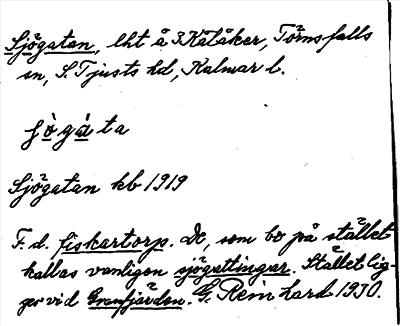 Sjögatan, lht å 3 Kålåker, Törnsfalls
sn, S. Tjusts hd, Kalmar l.
ʃògáta
Sjögatan kb 1919
F. d. fiskartorp. De, som bo på stället
kallas vanligen sjögattingar. Stället lig-
ger vid Granfjärden. G. Reinhard 1930.